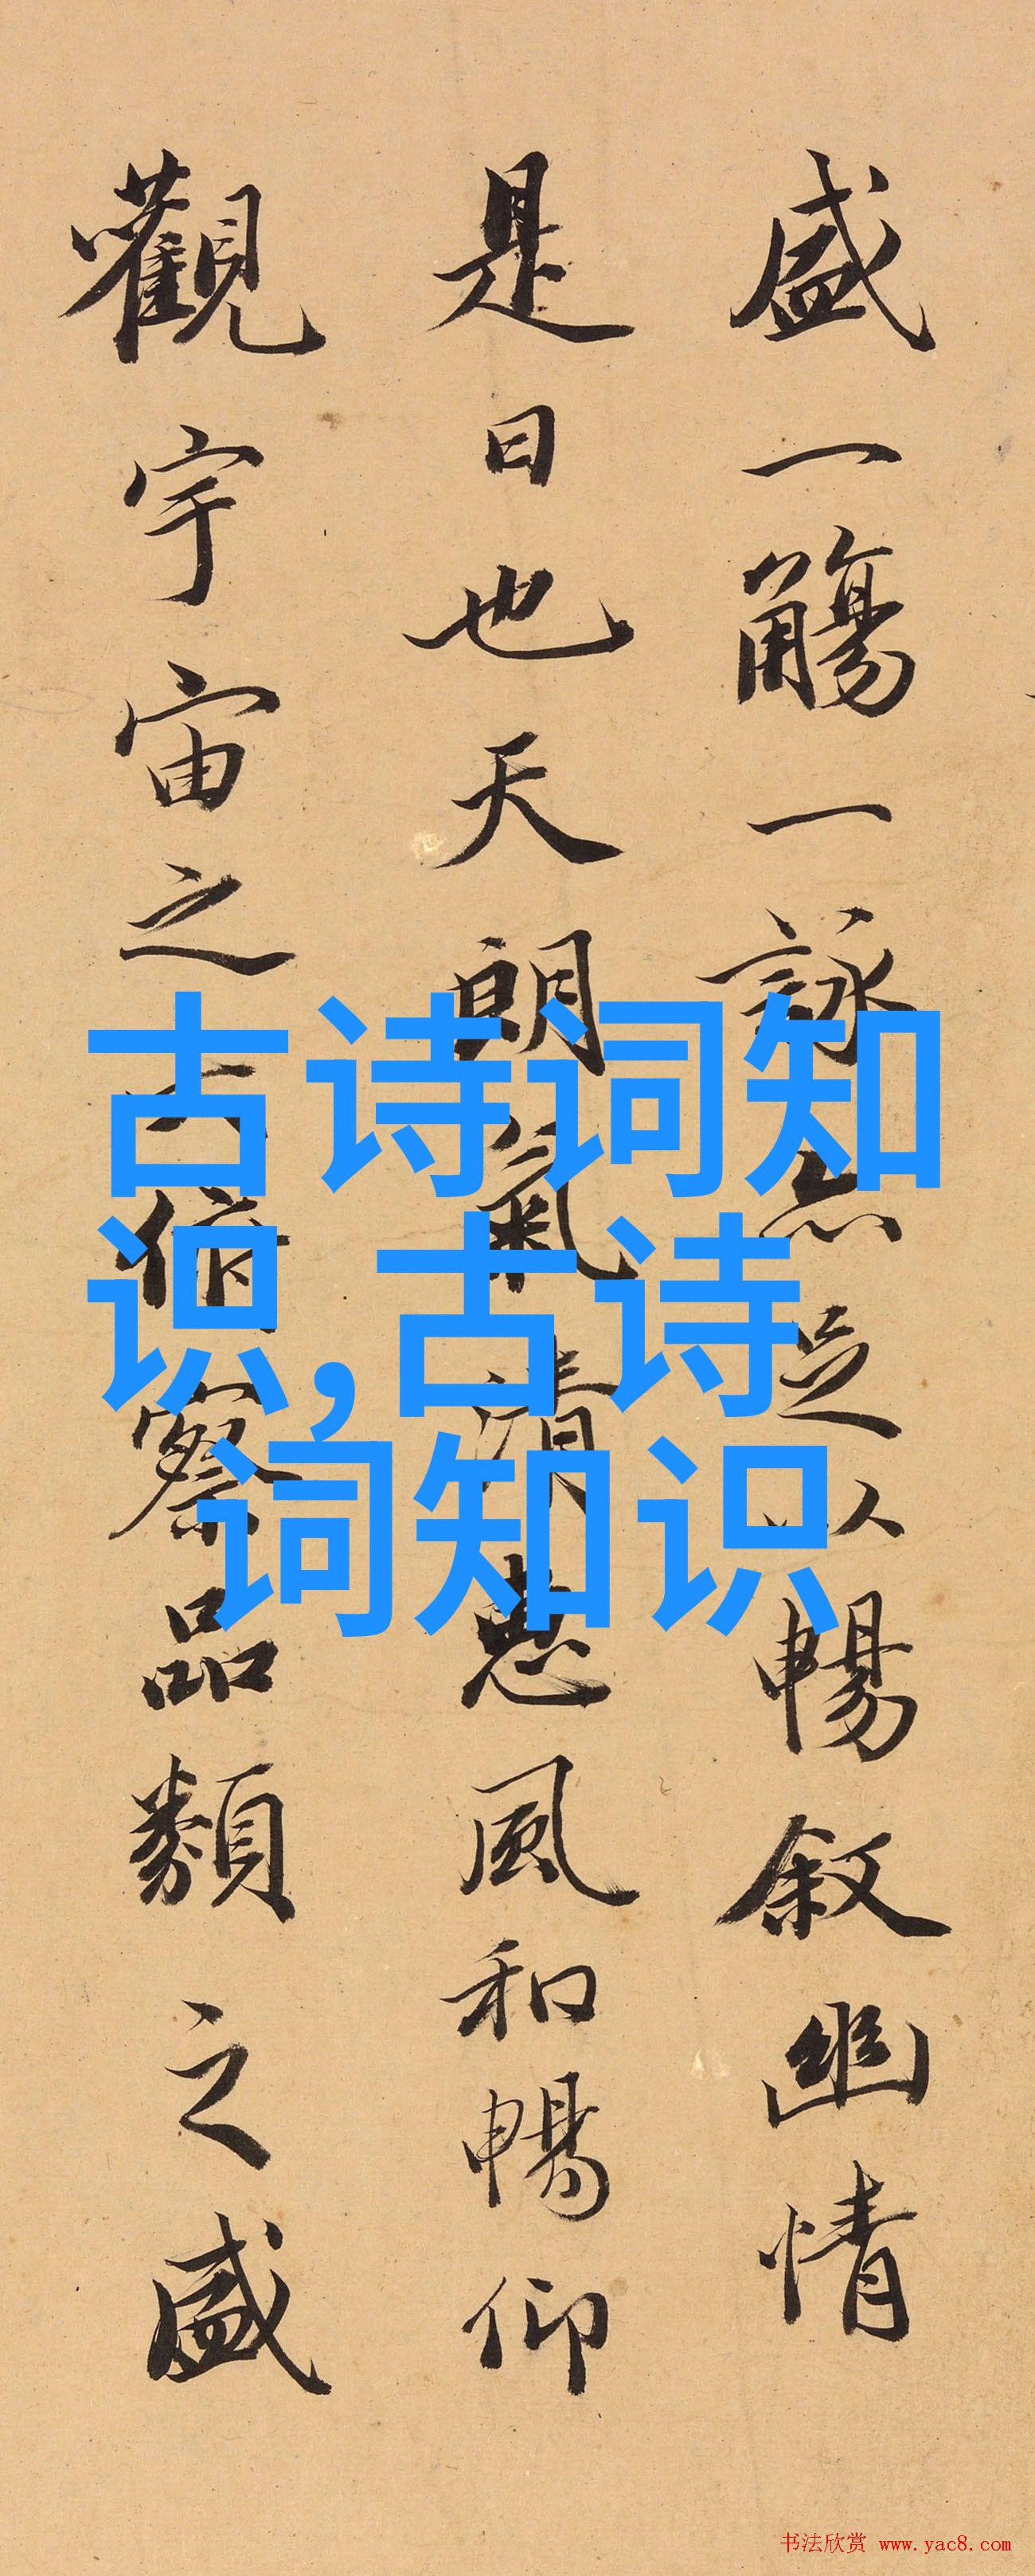 盛一觴一詠亦足以暢叙幽情
是日也天朗氣清惠風和暢仰
觀宇宙之大俯察品類之盛
古诗词知
识,古诗
词知识
书法欣赏 www.yac8.com